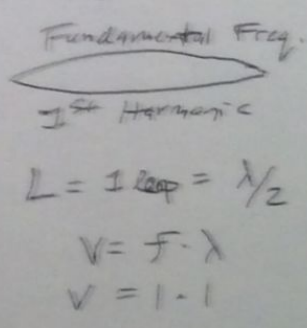 Fundamental Freq.
1st Harmonic
L = 1 loop = λ/2
V = f · λ
V = 1 · 1